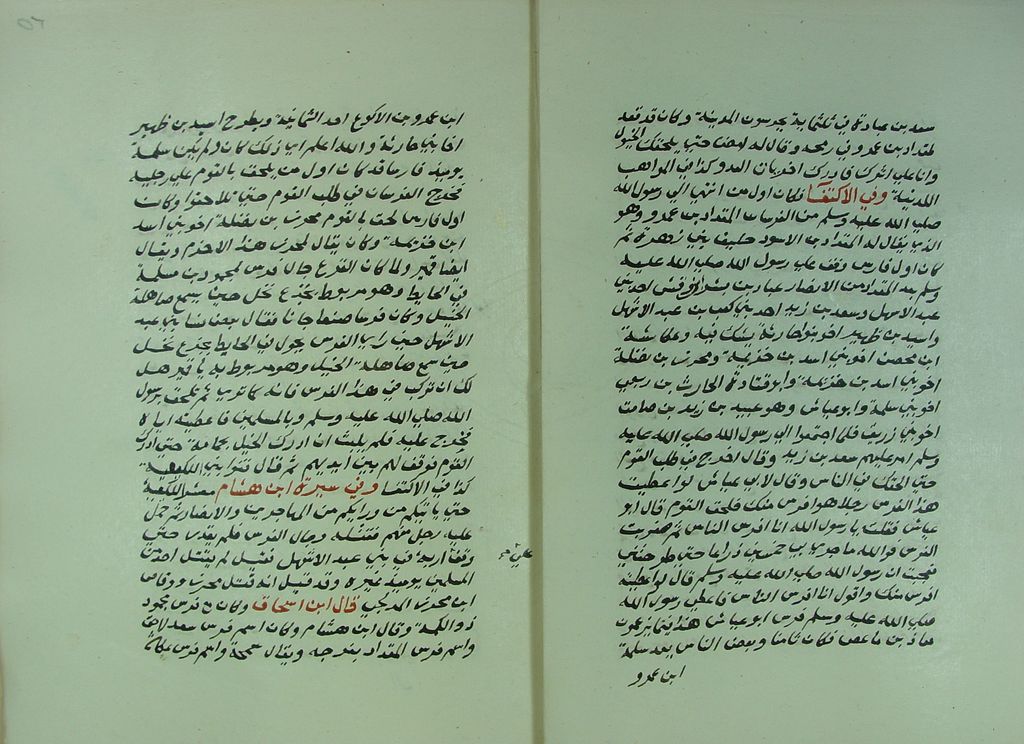 سعد بن عبادة في ثلثماية يحرسون المدينة وكان قد عقد
لمقداد بن عمرو في رمحه وقال له امض حتى يلحقك الخيول
وانا على اثرك فادرك اخريات العدو كذا في المواهب
اللدنية وفي الاكتفا فكان اول من انتهى الى رسول الله
صلى الله عليه وسلم من الفرسان المقداد بن عمرو وهو
الذي يقال له المقداد بن الاسود حليف بني زهرة ثم
كان اول فارس وقف على رسول الله صلى الله عليه
وسلم بعد المقداد من الانصار عباد بن بشر بن وقش احد بني
عبد الاشهل وسعد بن زيد احد بني كعب بن عبد الاشهل
واسيد بن ظهير اخو بني حارثة يشك فيه وعكاشة
ابن محصن اخو بني اسد بن خزيمة ومحرز بن نضلة
اخو بني اسد بن خزيمة وابو قتادة الحارث بن ربعي
اخو بني سلمة وابو عياش وهو عبيد بن زيد بن صامت
اخو بني زريق فلما اجتمعوا الى رسول الله صلى الله عليه
وسلم امر عليهم سعد بن زيد وقال اخرج في طلب القوم
حتى الحقك في الناس وقال لابي عياش لو اعطيت
هذا الفرس رجلا هو افرس منك فلحق القوم قال ابو
عياش فقلت يا رسول الله انا افرس الناس ثم ضربت
الفرس فوالله ما جرى بي خمسين ذراعا حتى طرحني
فعجبت ان رسول الله صلى الله عليه وسلم قال لو اعطيته
افرس منك واقول انا افرس الناس فاعطى رسول الله
صلى الله عليه وسلم فرس ابو عياش هذا فيما يزعمون
معاذ بن ماعص فكان ثامنا وبعض الناس يعد سلمة
ابن عمرو
ابن عمرو بن الاكوع احد الثمانية ويطرح اسيد بن ظهير
اخا بني حارثة والله اعلم اي ذلك كان ولم يكن سلمة
يومئذ فارسا قد كان اول من يلحق بالقوم على رجليه
فخرج الفرسان في طلب القوم حتى تلاحقوا وكان
اول فارس لحق بالقوم محرز بن نضلة اخو بني اسد
ابن خزيمة وكان يقال لمحرز هذا الاخرم ويقال
ايضا قمير ولما كان الفزع جال فرس لمحمود بن مسلمة
في الحايط وهو مربوط بجذع نخل حين سمع صاهلة
الخيل وكان فرسا صنيعا جاما فقال بعض نسا بني عبد
الاشهل حين راى الفرس يجول في الحايط بجذع نخل
حين سمع صاهلة الخيل وهو مربوط به يا قمير هل
لك ان تركب في هذا الفرس فانه كما ترى ثم تلحق برسول
الله صلى الله عليه وسلم وبالمسلمين فاعطينه اياه
فخرج عليه فلم يلبث ان ادرك الخيل بجماعة حتى ادرك
القوم فوقف لهم بين ايديهم ثم قال قفوا بني اللكيعة
كذا في الاكتفا وفي سيرة ابن هشام معشر اللكيعة
حتى يلحق بكم من ورايكم من المهاجرين والانصار ثم حمل
عليه رجل منهم فقتله وجال الفرس فلم يقدر حتى
وقف اريه في بني عبد الاشهل فقيل لم يقتل احد من
المسلمين يومئذ غيره وقد قيل انه قتل محرز ووقاص
ابن محرز المدلجي قال ابن اسحاق وكان فرس محمود
ذو اللمة وقال ابن هشام وكان اسم فرس سعد لاحق
واسم فرس المقداد بعزجه ويقال سمحة واسم فرس عكاشة